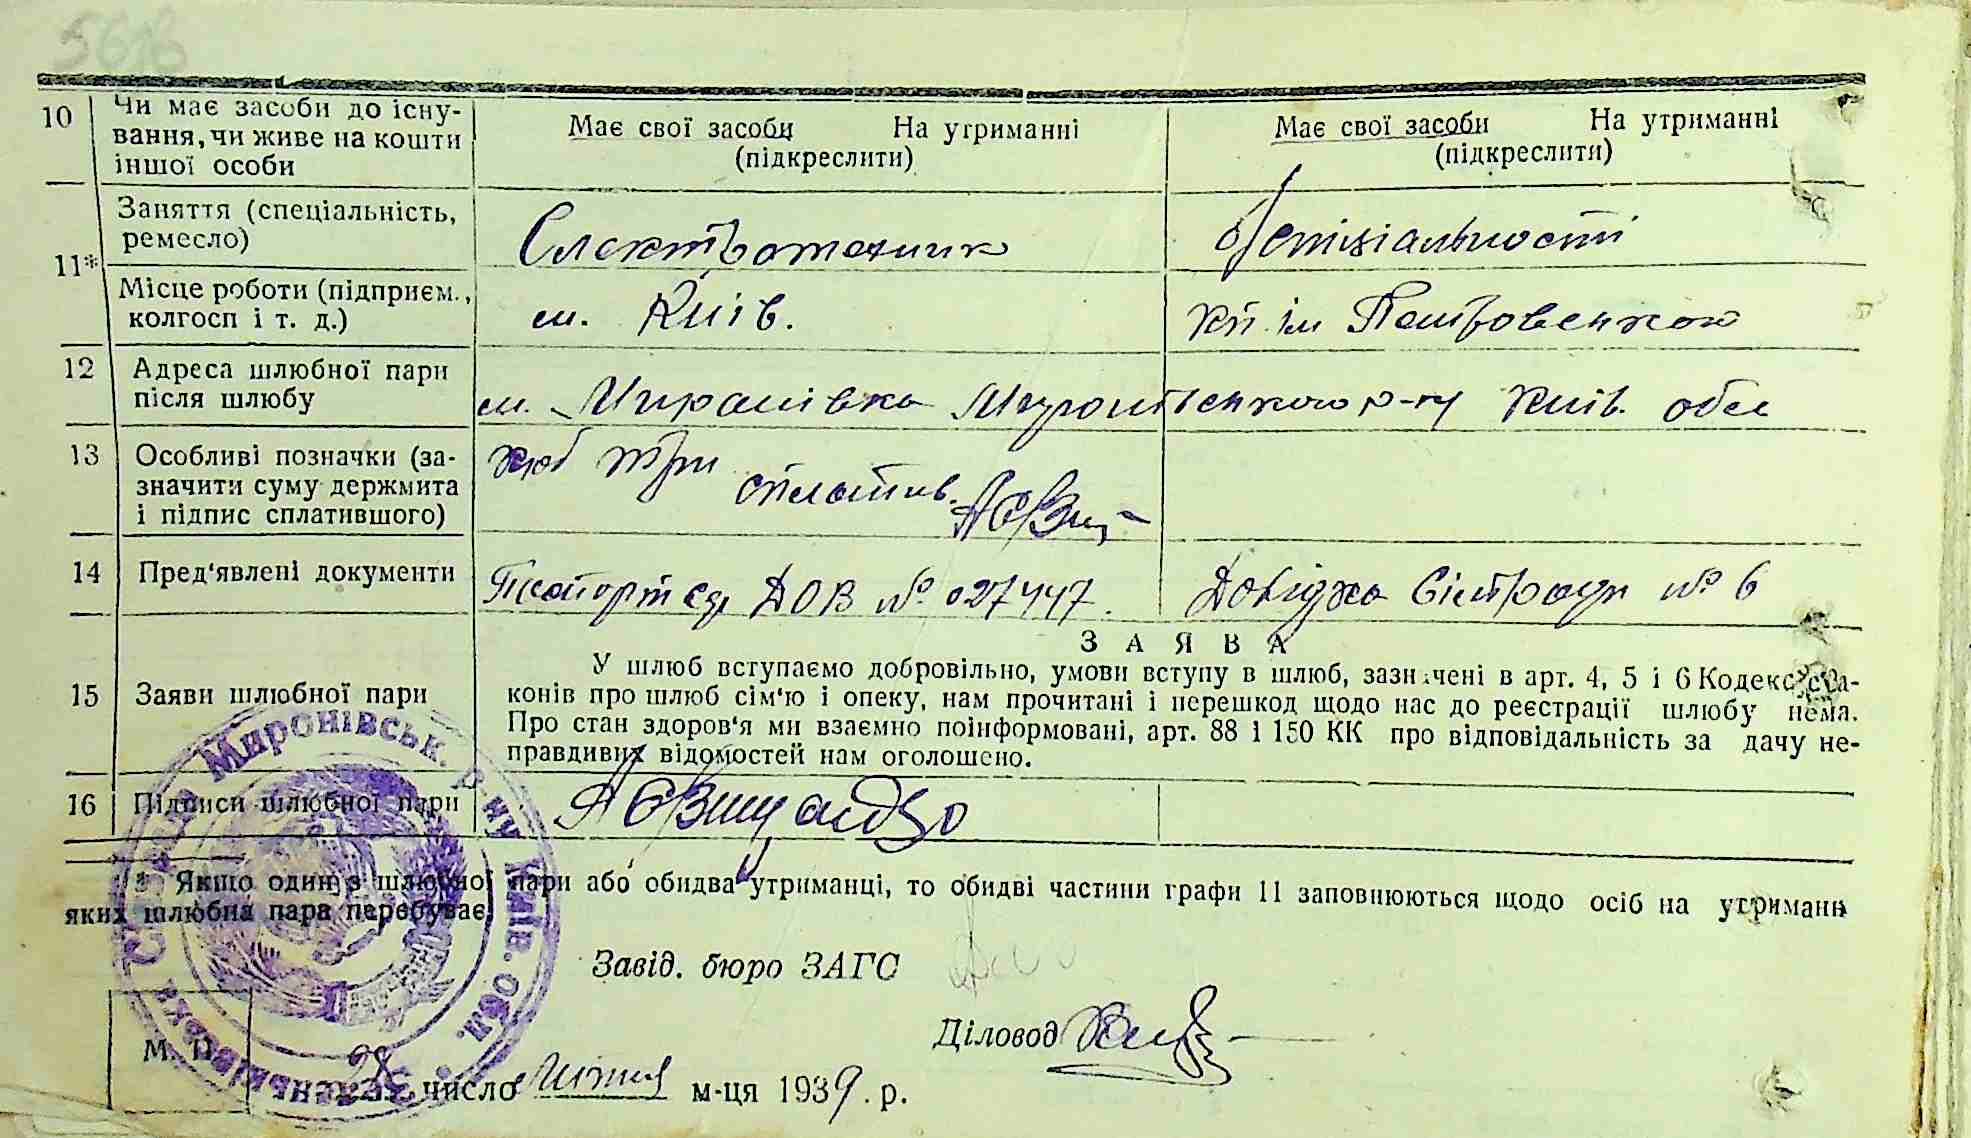 5618
10 Чи має засоби до існу-
вання, чи живе на кошти
іншої особи
Має свої засоби На утриманні
(підкреслити)
Має свої засоби На утриманні
(підкреслити)
11* Заняття (спеціальність,
ремесло)
Електротехник
б/спіціальності
Місце роботи (підприєм.,
колгосп і т. д.)
м. Київ.
ім Петровського
12 Адреса шлюбної пари
після шлюбу
м. Миронівка Миронівського р-ну Київ. обл
13 Особливі позначки (за-
значити суму держмита
і підпис сплатившого)
три
сплатив.
14 Пред'явлені документи
Паспорт ДОВ № 027447.
Довідка Сільради № 6
З А Я В А
15 Заяви шлюбної пари
У шлюб вступаємо добровільно, умови вступу в шлюб, зазначені в арт. 4, 5 і 6 Кодексу за-
конів про шлюб сім'ю і опеку, нам прочитані і перешкод щодо нас до реєстрації шлюбу нема.
Про стан здоров'я ми взаємно поінформовані, арт. 88 і 150 КК про відповідальність за дачу не-
правдивих відомостей нам оголошено.
16 Підписи шлюбної пари
* Якщо один з шлюбної пари або обидва утриманці, то обидві частини графи 11 заповнюються щодо осіб на утриманн
яких шлюбна пара перебуває
Завід. бюро ЗАГС
Діловод
М. П.
28 число Липня м-ця 1939 . р.
Миронівськ. р-ну Київ. Обл.